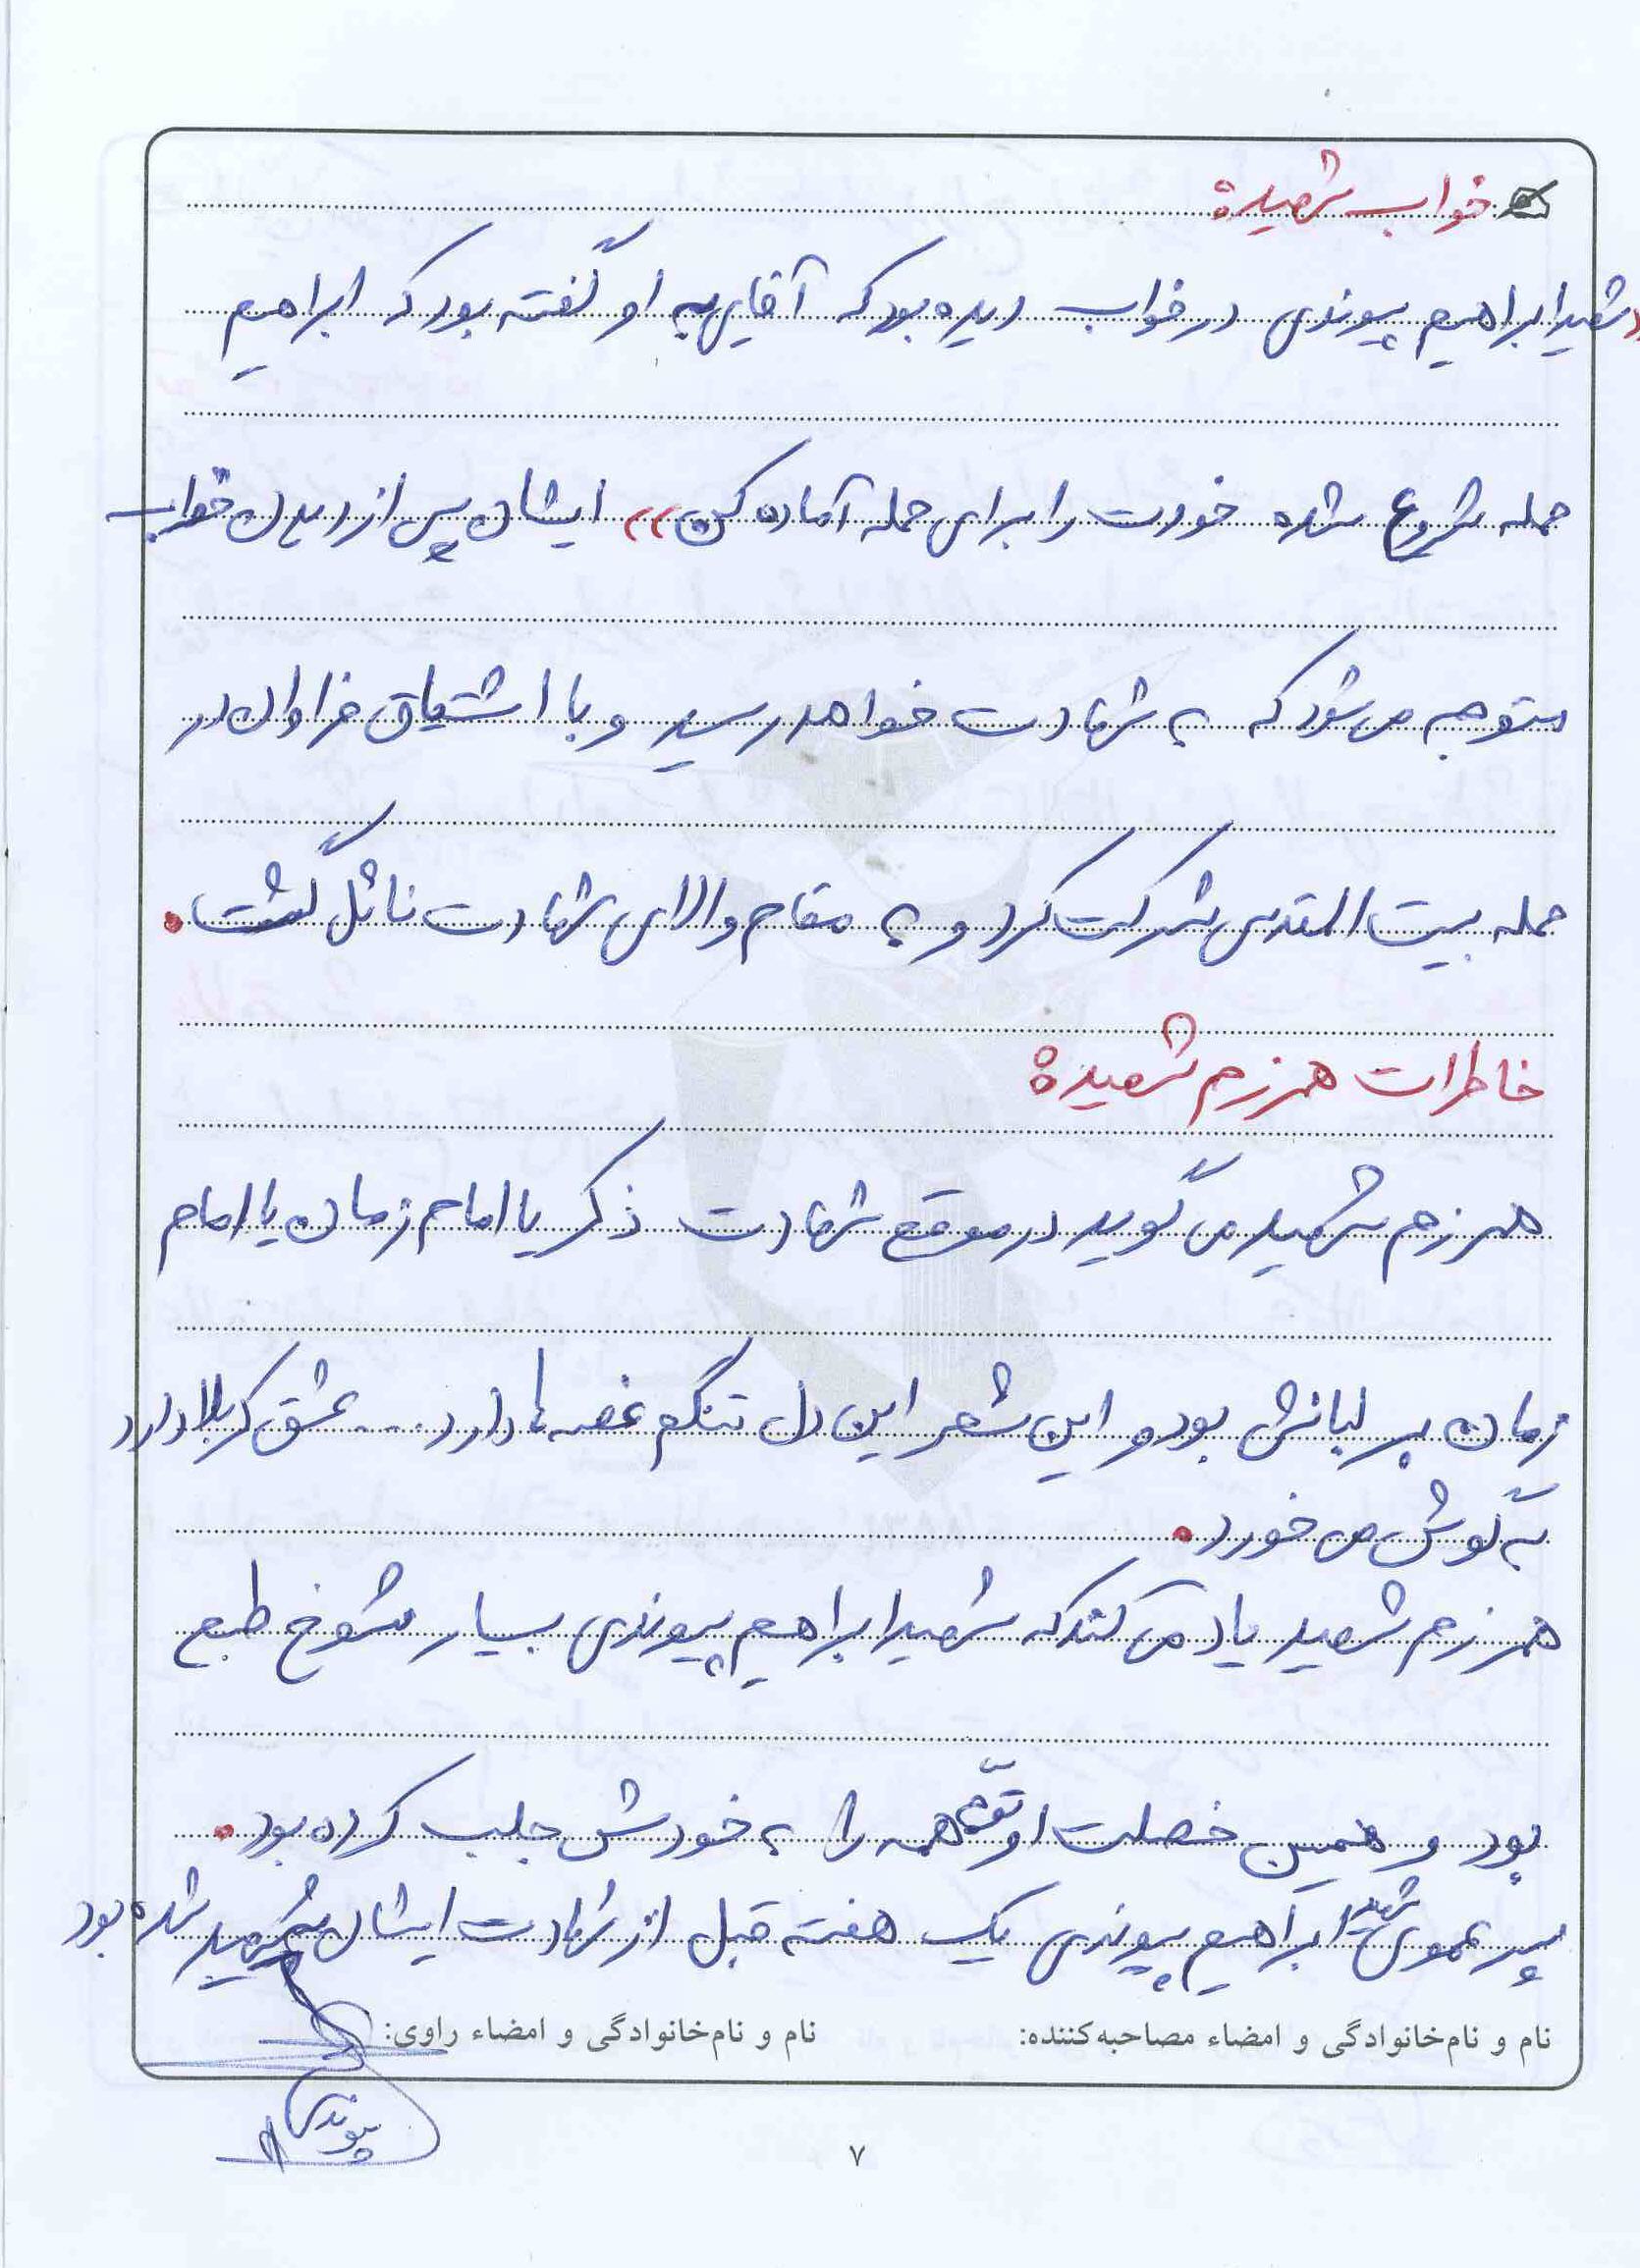 خواب شهید:
«شهید ابراهیم پیوندی در خواب دیده بود که آقایی به او گفته بود که ابراهیم
حمله شروع شده خودت را برای حمله آماده کن» ایشان پس از دیدن خواب
متوجه می‌شود که به شهادت خواهد رسید و با اشتیاق فراوان در
حمله بیت المقدس شرکت کرد و به مقام والای شهادت نائل گشت.
خاطرات همرزم شهید:
همرزم شهید می گوید در موقع شهادت ذکر یا امام زمان یا امام
زمان بر لبانش بود و این شعر این دل تنگم غصه ها دارد .... عشق کربلا دارد
به گوش می خورد.
همرزم شهید یاد می کند که شهید ابراهیم پیوندی بسیار شوخ طبع
بود و همین خصلت او توجه همه را به خودش جلب کرده بود.
پسر عموی شهید ابراهیم پیوندی یک هفته قبل از شهادت ایشان شهید شده بود
نام و نام‌خانوادگی و امضاء مصاحبه‌کننده: نام و نام‌خانوادگی و امضاء راوی:
پیوندی
۷